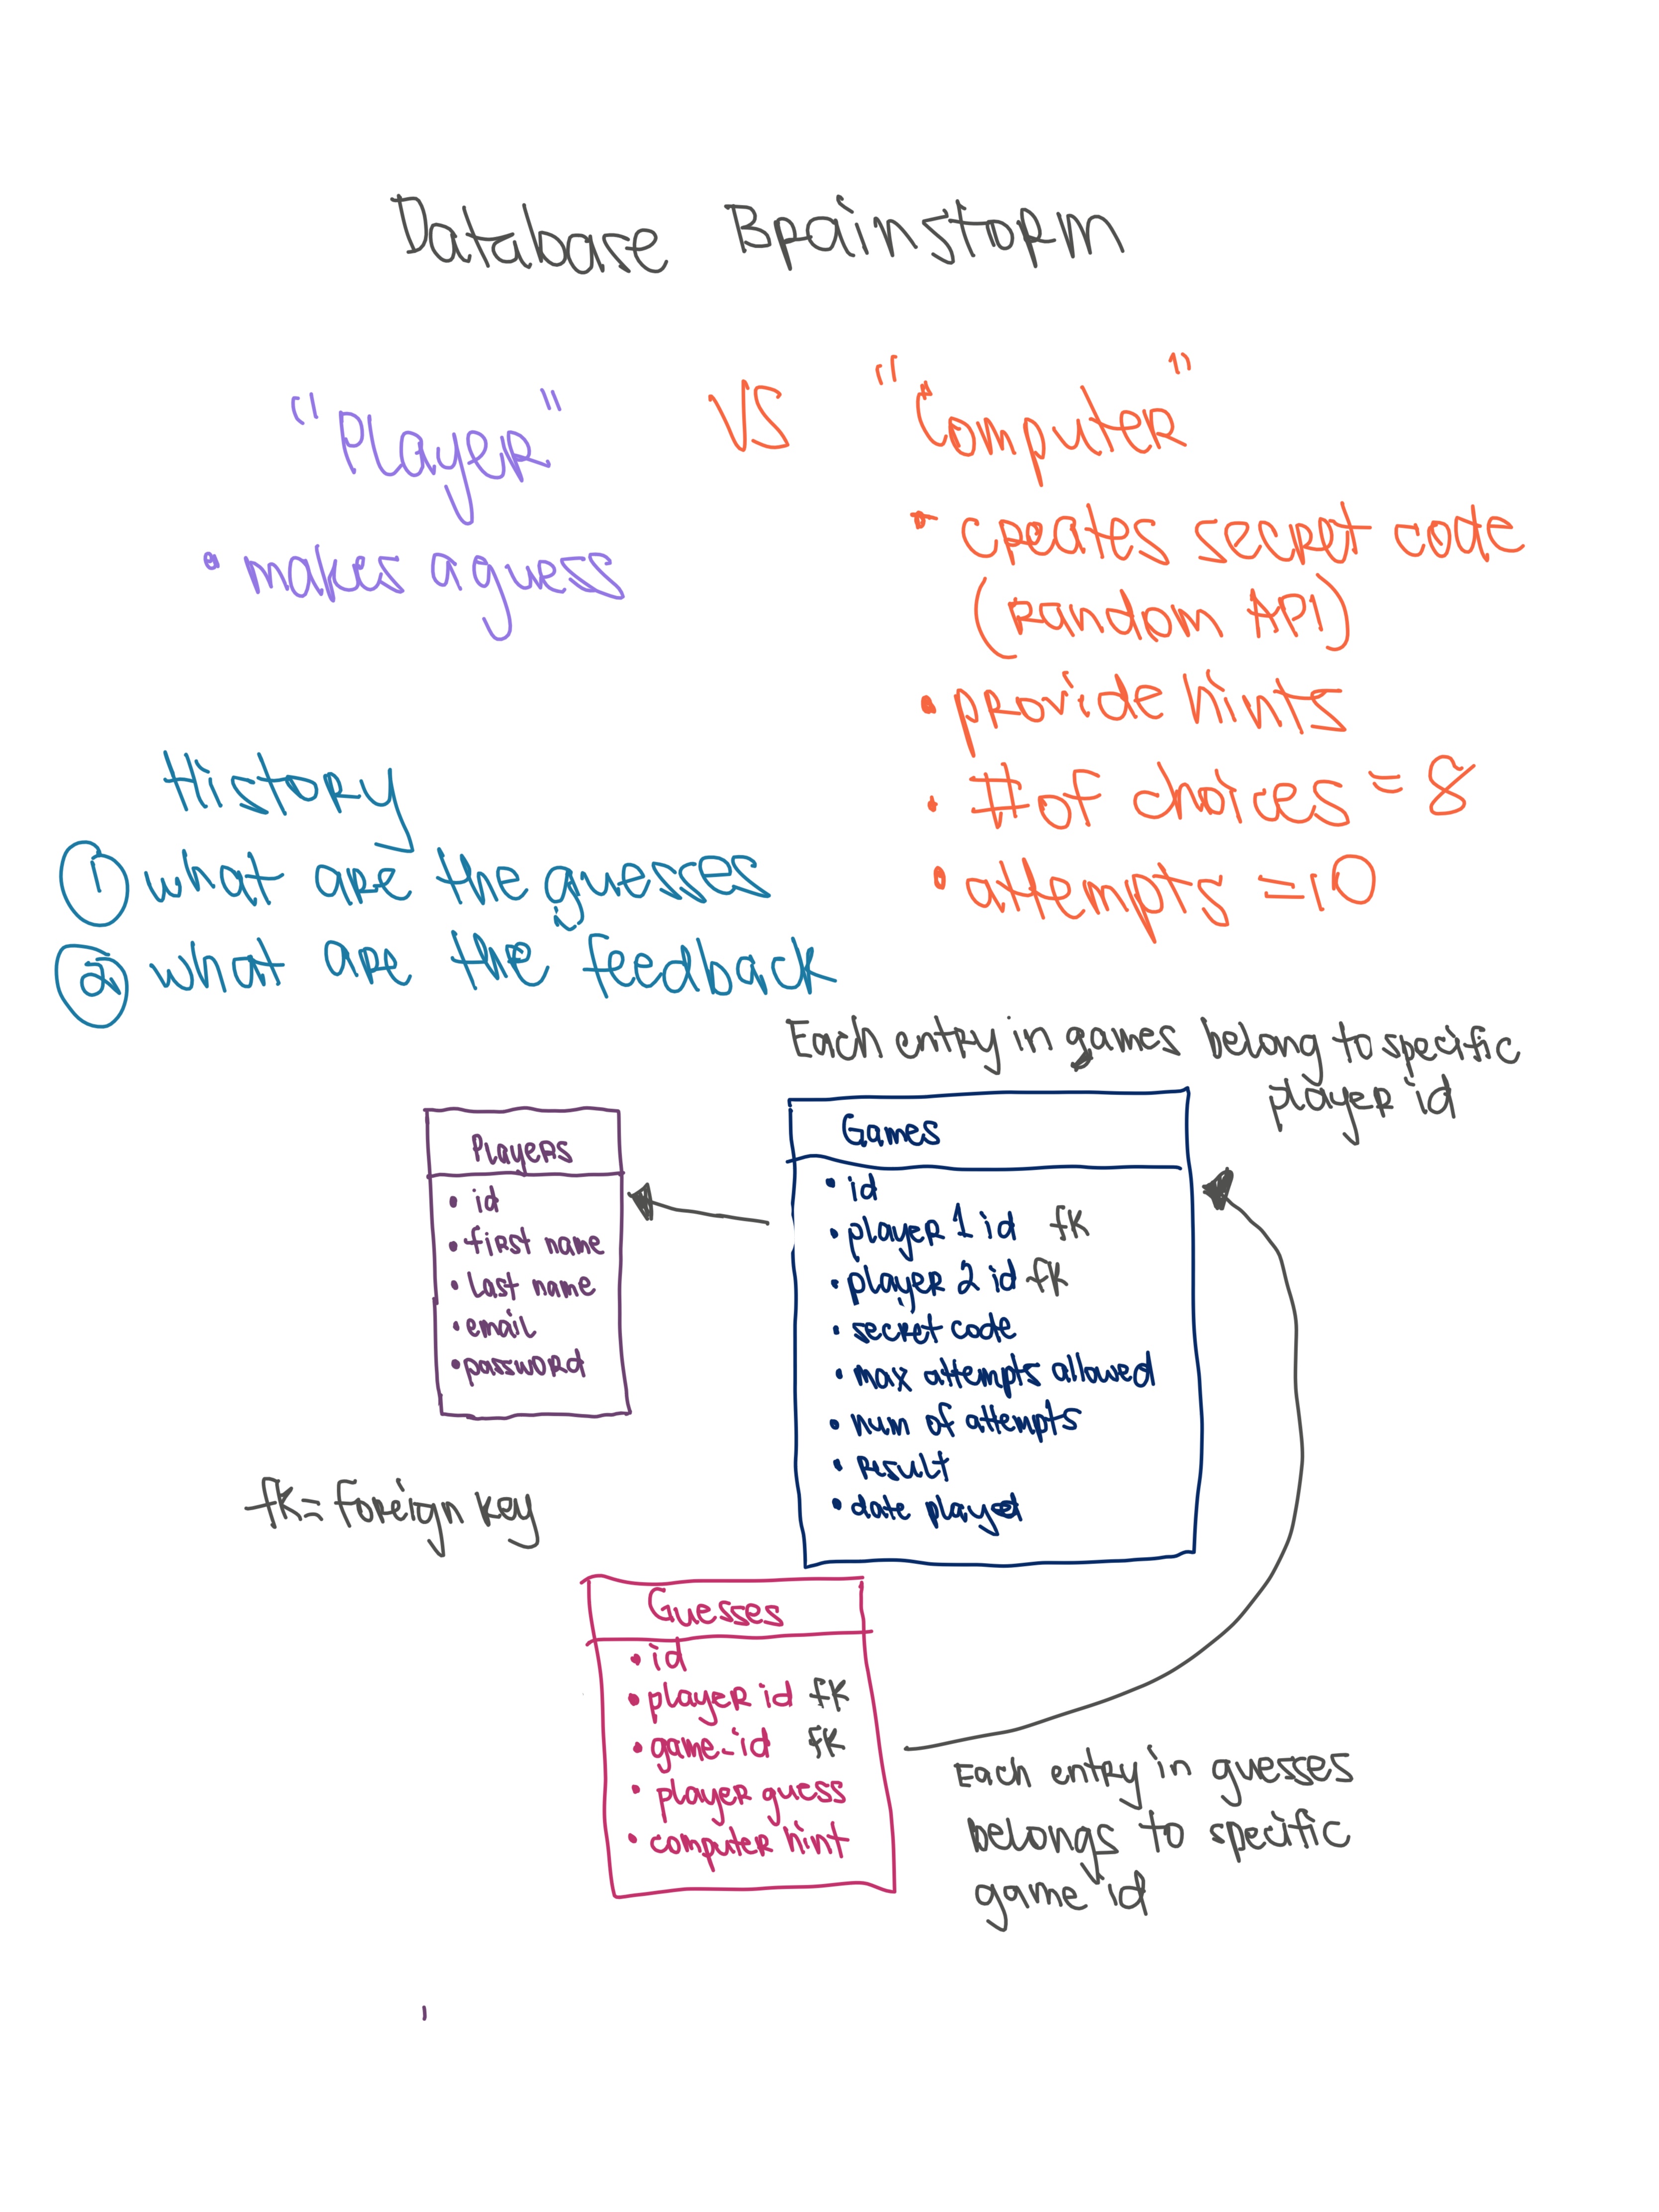 Database Brainstorm
"Player" VS "Computer"
• makes a guess
• creates secret code
(random API)
• provide hints
• # of choices = 8
• attempts = 10
History
① what are the guesses
② what are the feedback
Each entry in games belong to specific
player id
Players
• id
• first name
• Last name
• email
• password
Games
• id
• player 1 id fk
• player 2 id fk
• secret code
• max attempts allowed
• num of attempts
• result
• date played
fk = foreign key
Guesses
• id
• player id fk
• game_id fk
• player guess
• computer hint
Each entry in guesses
belongs to specific
game id